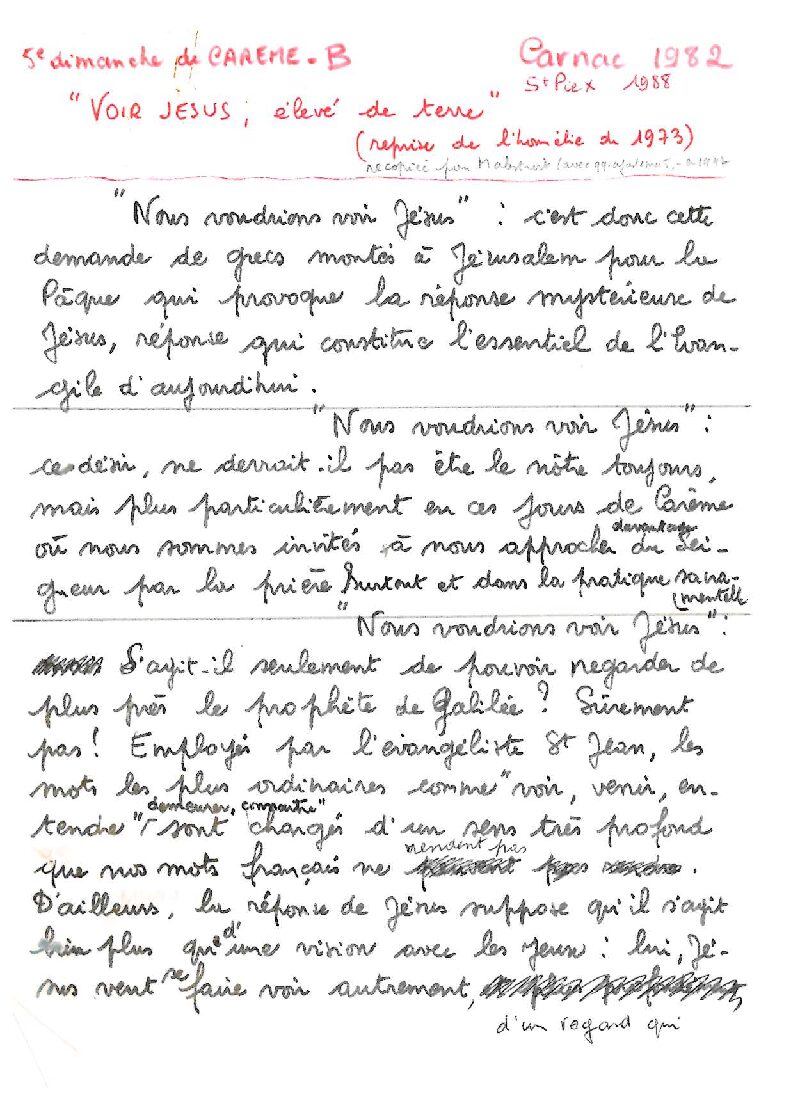 5e dimanche de CAREME - B Carnac 1982
St Pie X 1988
"VOIR JESUS, élevé de terre"
(reprise de l'homélie de 1973)
recopiée pour Malestroit (avec qq. ajoutements
"Nous voudrions voir Jésus" : c'est donc cette
demande de grecs montés à Jérusalem pour la
Pâque qui provoque la réponse mystérieuse de
Jésus, réponse qui constitue l'essentiel de l'Evan-
gile d'aujourd'hui.
"Nous voudrions voir Jésus" :
ce désir, ne devrait-il pas être le nôtre toujours,
mais plus particulièrement en ces jours de Carême
où nous sommes invités à nous approcher davantage du Sei-
gneur par la prière surtout et dans la pratique sacra-
mentelle
"Nous voudrions voir Jésus" :
S'agit-il seulement de pouvoir regarder de
plus près le prophète de Galilée ? Sûrement
pas ! Employés par l'évangéliste St Jean, les
mots les plus ordinaires comme "voir, venir, en-
tendre", demeurer, connaître" sont chargés d'un sens très profond
que nos mots français ne rendent pas.
D'ailleurs, la réponse de Jésus suppose qu'il s'agit
bien plus que d'une vision avec les yeux : lui, Jé-
sus veut se faire voir autrement,
d'un regard qui